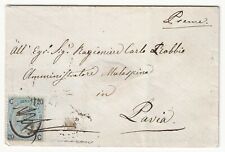 Preme
All' Egr. Sig. Ragioniere Carlo Rabbio
Amministratore Malaspina
in
Pavia
C 20 C